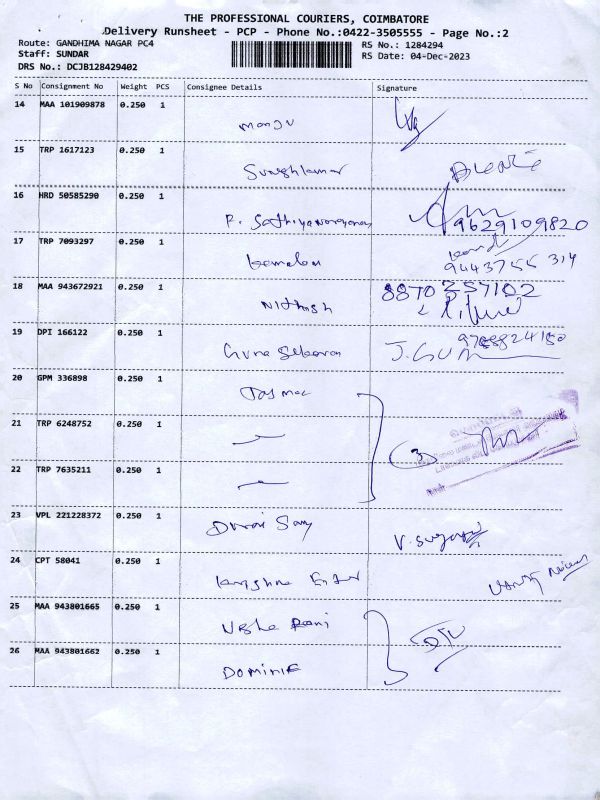 THE PROFESSIONAL COURIERS, COIMBATORE
Delivery Runsheet - PCP - Phone No.:0422-3505555 - Page No.:2
Route: GANDHIMA NAGAR PC4
Staff: SUNDAR
DRS No.: DCJB128429402
RS No.: 1284294
RS Date: 04-Dec-2023
S No Consignment No Weight PCS Consignee Details Signature
14 MAA 101909878 0.250 1
15 TRP 1617123 0.250 1
16 HRD 50585290 0.250 1
P. Sathiyanarayanan
9629109820
17 TRP 7093297 0.250 1
9443755 314
18 MAA 943672921 0.250 1
Nithish 8870257102
19 DPI 166122 0.250 1
Guna Sekaran
20 GPM 336898 0.250 1
Tasmac
21 TRP 6248752 0.250 1
22 TRP 7635211 0.250 1
3
23 VPL 221228372 0.250 1
Durai Samy
24 CPT 58041 0.250 1
25 MAA 943801665 0.250 1
Usha Rani
26 MAA 943801662 0.250 1
Dominic